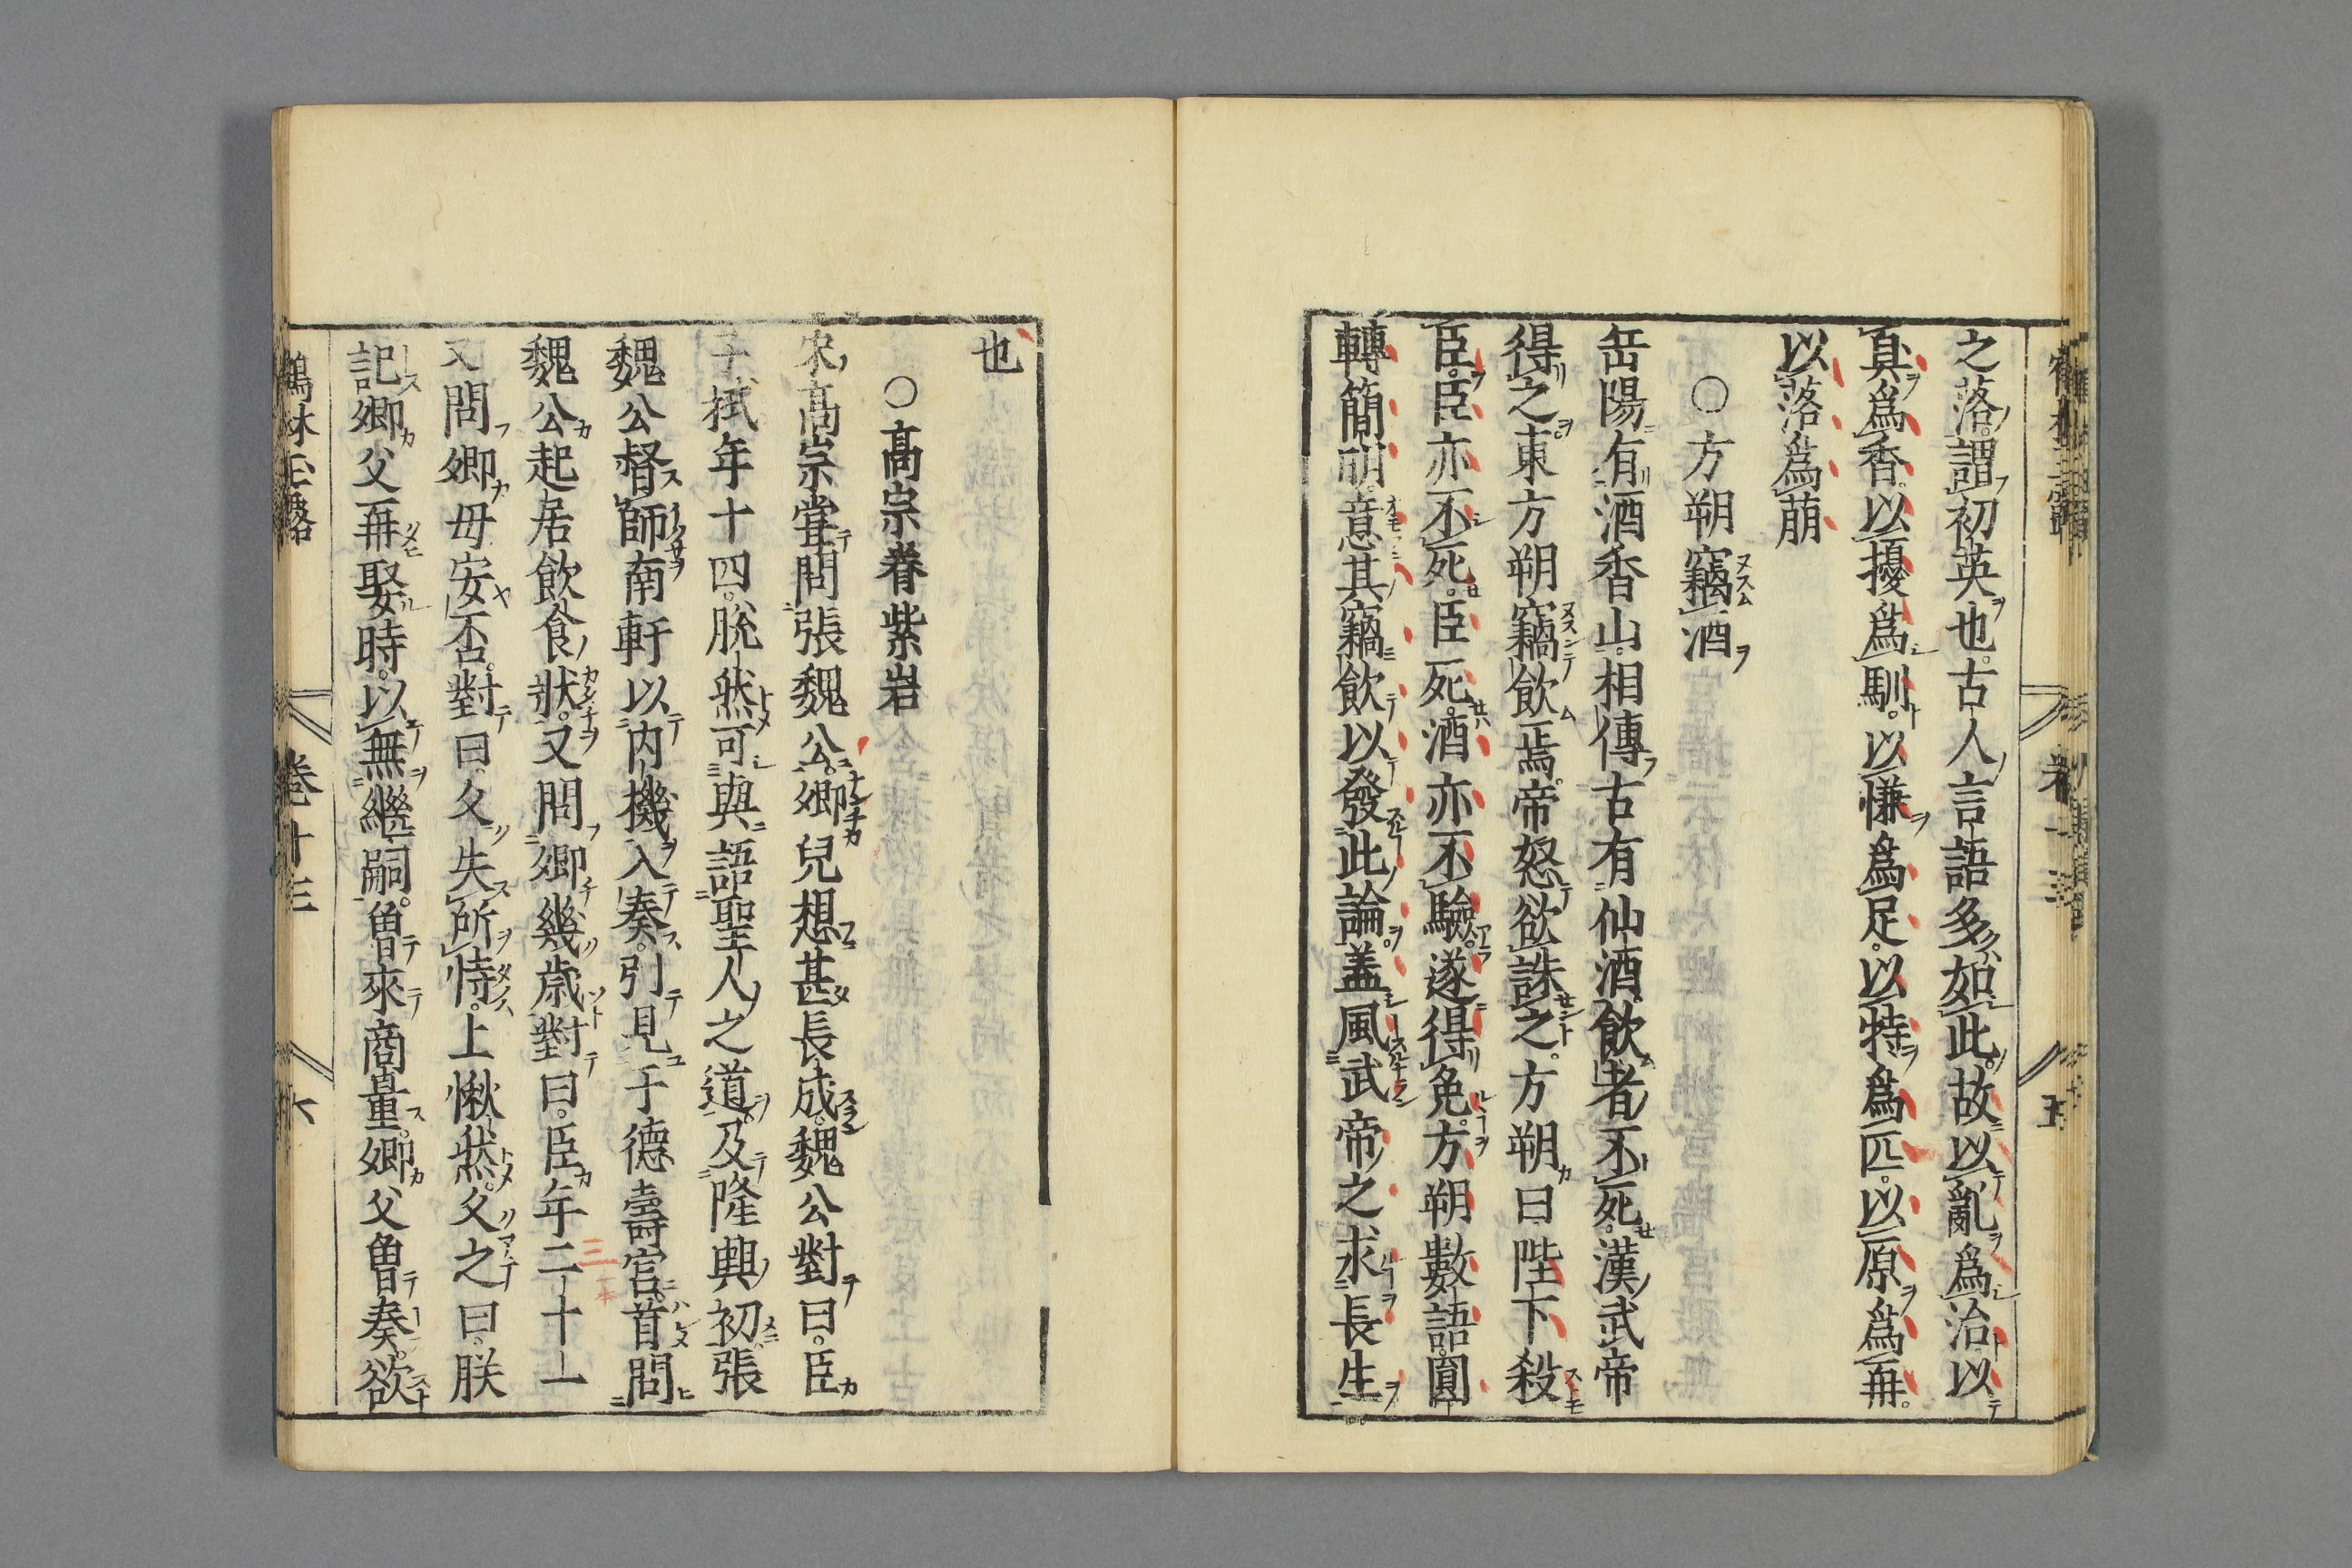 之落謂初英也古人言語多如此故以亂爲治以
臭爲香以擾爲馴以慊爲足以特爲匹以原爲再
以落爲萠
○方朔竊酒
岳陽有酒香山相傳古有仙酒飲者不死漢武帝
得之東方朔竊飲焉帝怒欲誅之方朔曰陛下殺
臣臣亦不死臣死酒亦不驗遂得免方朔數語圓
轉簡明意其竊飲以發此論盖風武帝之求長生
也
○髙宗眷紫岩
宋髙宗甞問張魏公卿兒想甚長成魏公對曰臣
子栻年十四脫然可與語聖人之道及隆興初張
魏公督師南軒以内機入奏引見于德壽宮首問
魏公起居飲食狀又問卿幾歳對曰臣年二十一
又問卿母安否對曰久失所恃上愀然久之曰朕
記卿父再娶時以無繼嗣曾來商量卿父曾奏欲
鶴林玉露 卷十三 六